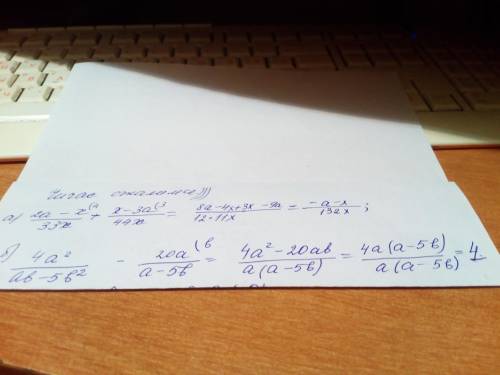 а) 2a − x⁽⁴/33x + x − 3a⁽³/44x = 8a − 4x + 3x − 9a/12·11x = −a − x/132x ;
б) 4a²/ab − 5b² − 20a⁽b/a − 5b = 4a² − 20ab/a(a − 5b) = 4a(a − 5b)/a(a − 5b) = 4